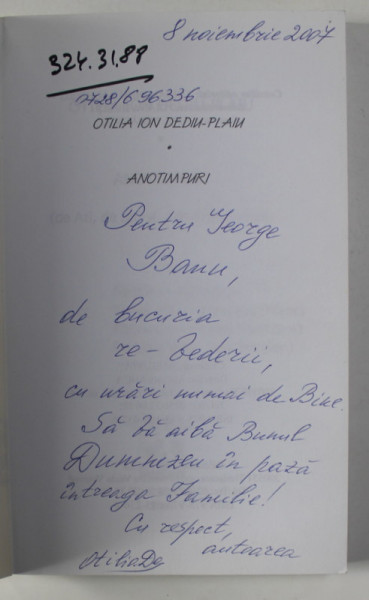 8 noiembrie 2007
324.31.88
0728/696336
OTILIA ION DEDIU-PLAIU
ANOTIMPURI
Pentru George
Banu,
de bucuria
re-vederii,
cu urări numai de Bine.
Să vă aibă Bunul
Dumnezeu în pază
întreaga Familie!
Cu respect,
autoarea